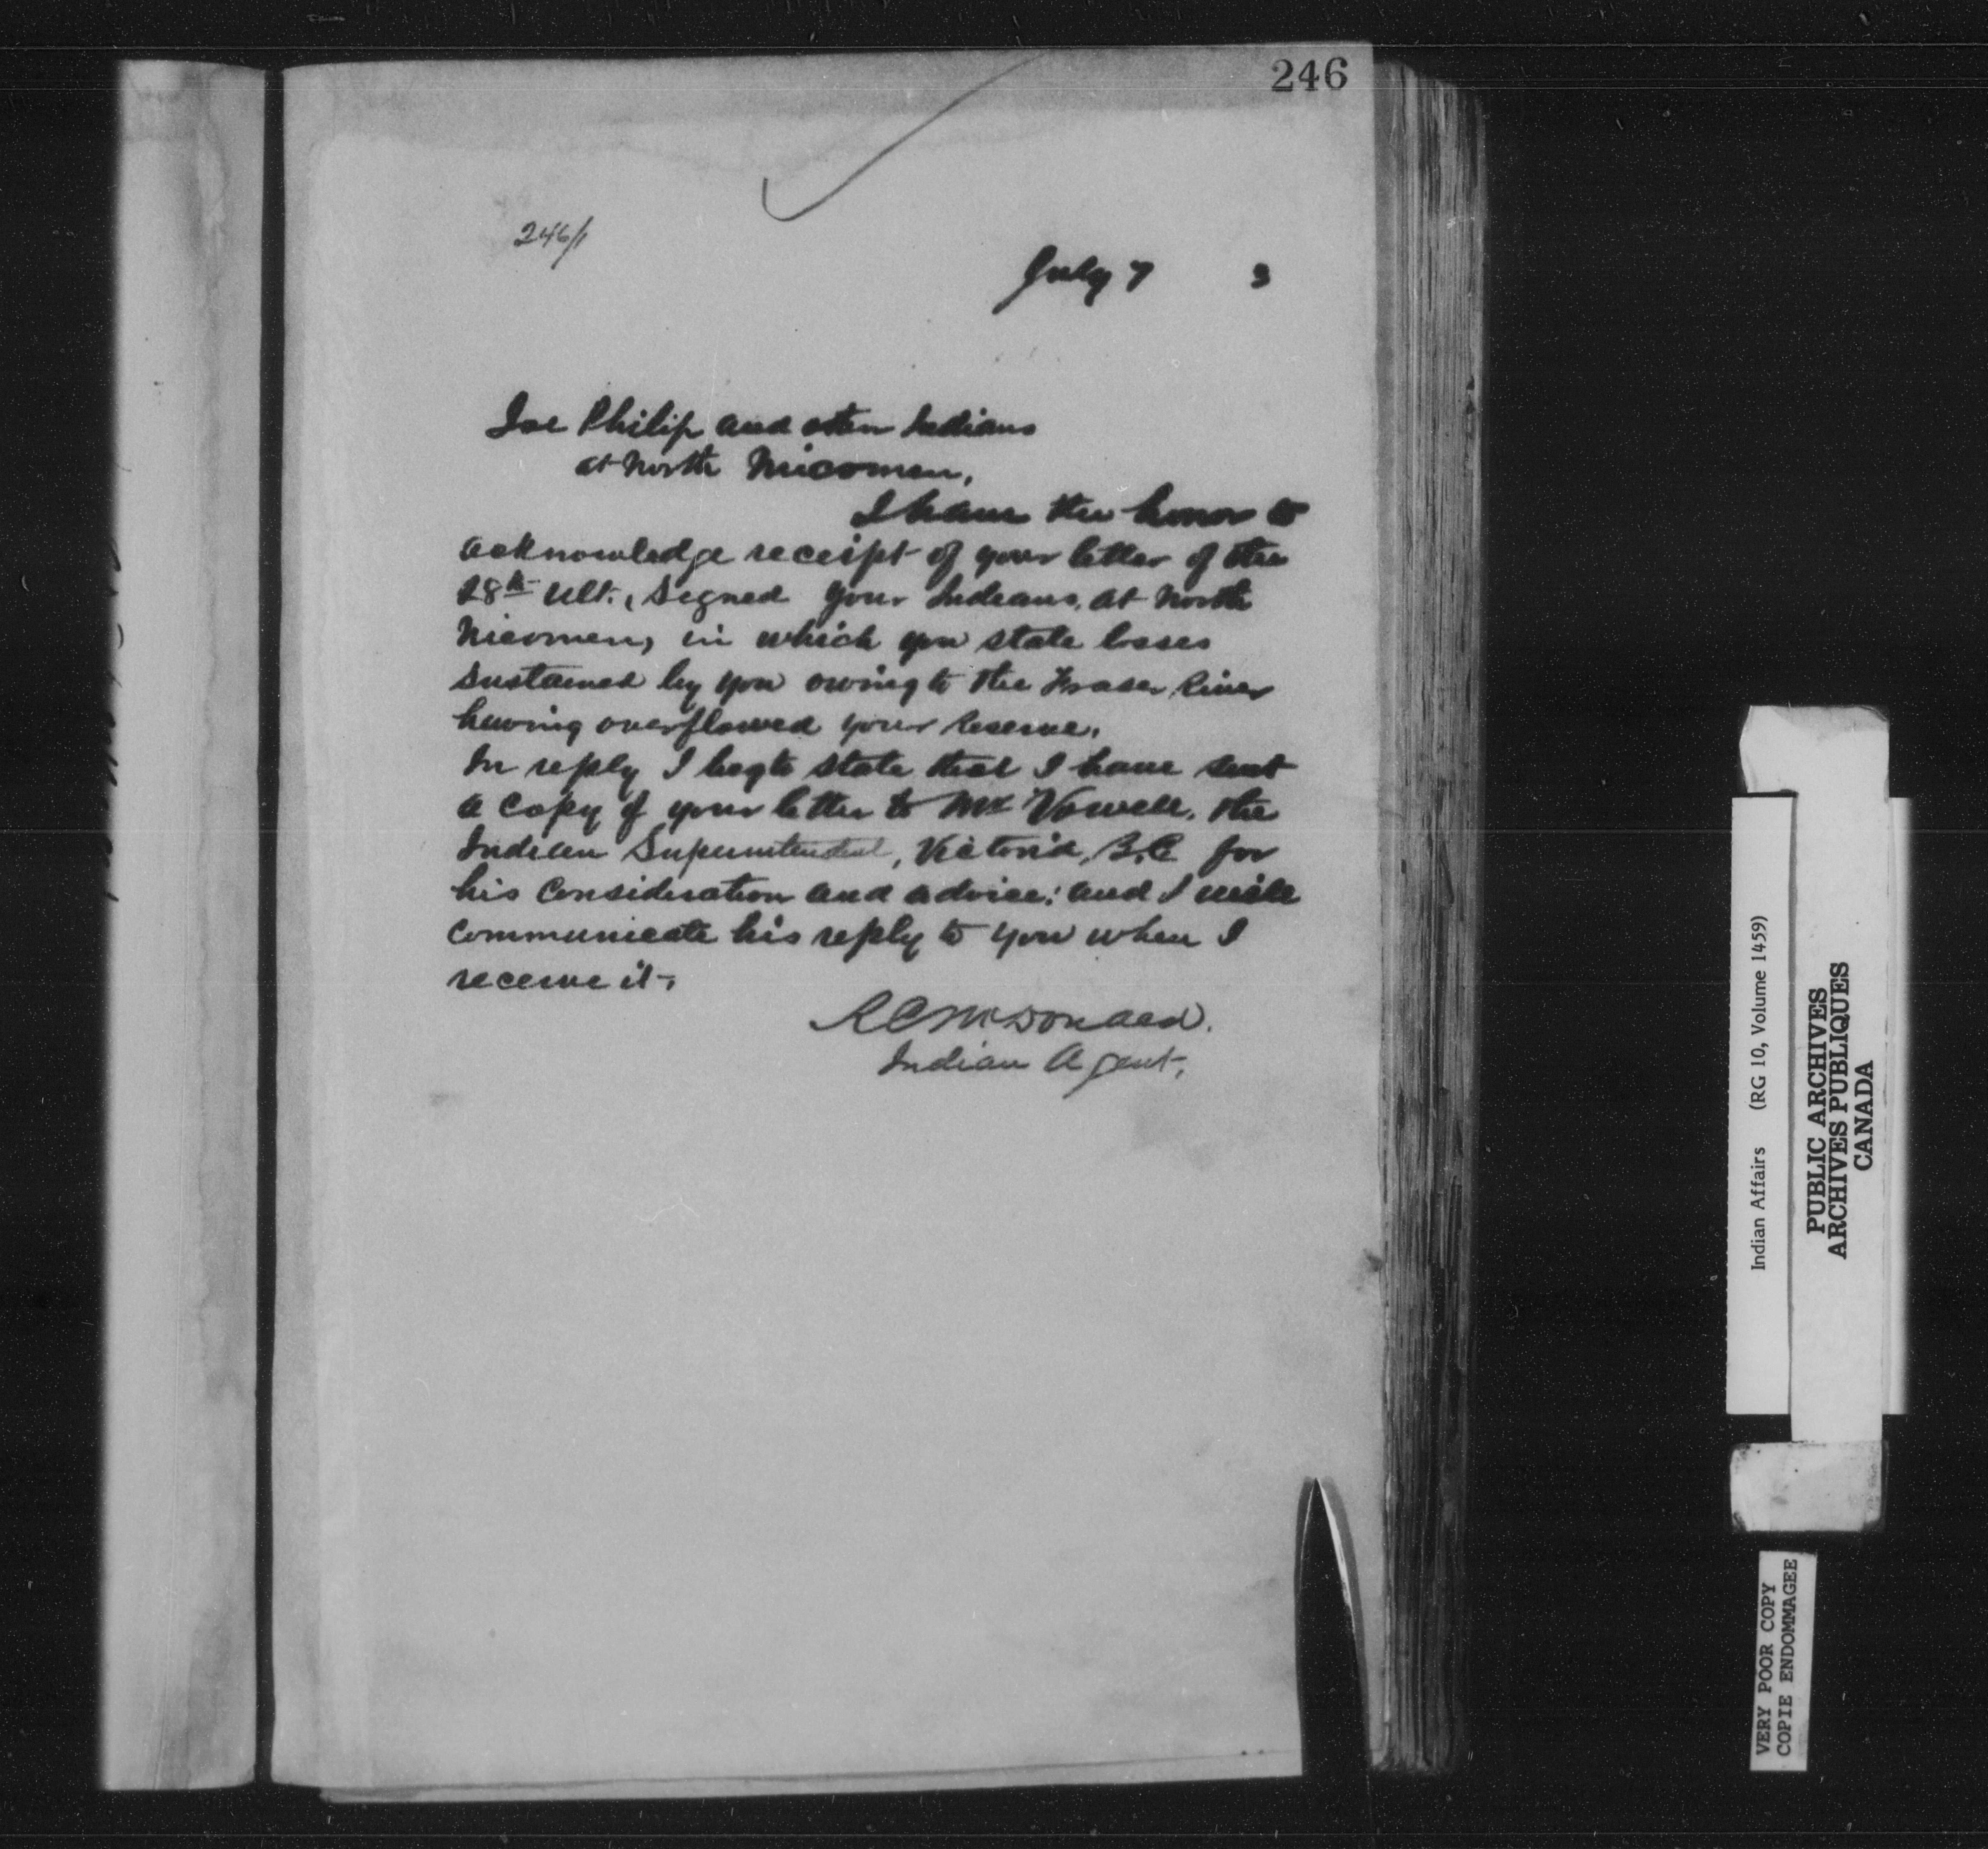 246
246/1
July 7 3
Joe Philip and other Indians
at North Nicomen,
I have the honor to
acknowledge receipt of your letter of the
28th ult., signed your Indians, at North
Nicomen, in which you state losses
sustained by you owing to the Fraser River
having overflowed your Reserve.
In reply I beg to state that I have sent
a copy of your letter to Mr Vowell, the
Indian Superintendent, Victoria, B.C. for
his consideration and advice; and I will
communicate his reply to you when I
receive it.
R C McDonald.
Indian Agent.
Indian Affairs (RG 10, Volume 1459)
PUBLIC ARCHIVES
ARCHIVES PUBLIQUES
CANADA
VERY POOR COPY
COPIE ENDOMMAGEE